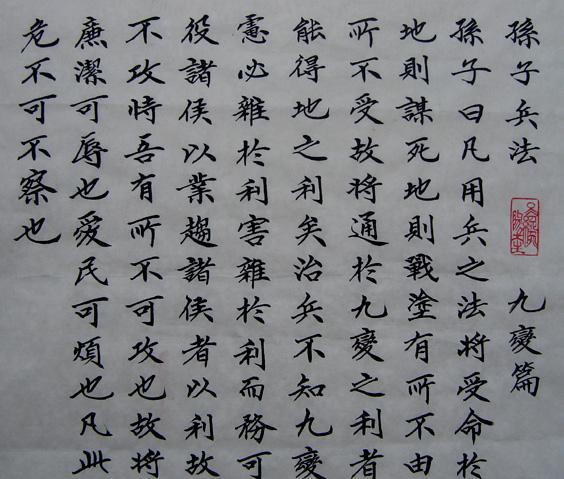 孫子兵法 九變篇
孫子曰凡用兵之法將受命於
地則謀死地則戰塗有所不由
所不受故將通於九變之利者
能得地之利矣治兵不知九變
慮必雜於利害雜於利而務可
役諸侯以業趨諸侯者以利故
不攻恃吾有所不可攻也故將
廉潔可辱也愛民可煩也凡此
危不可不察也